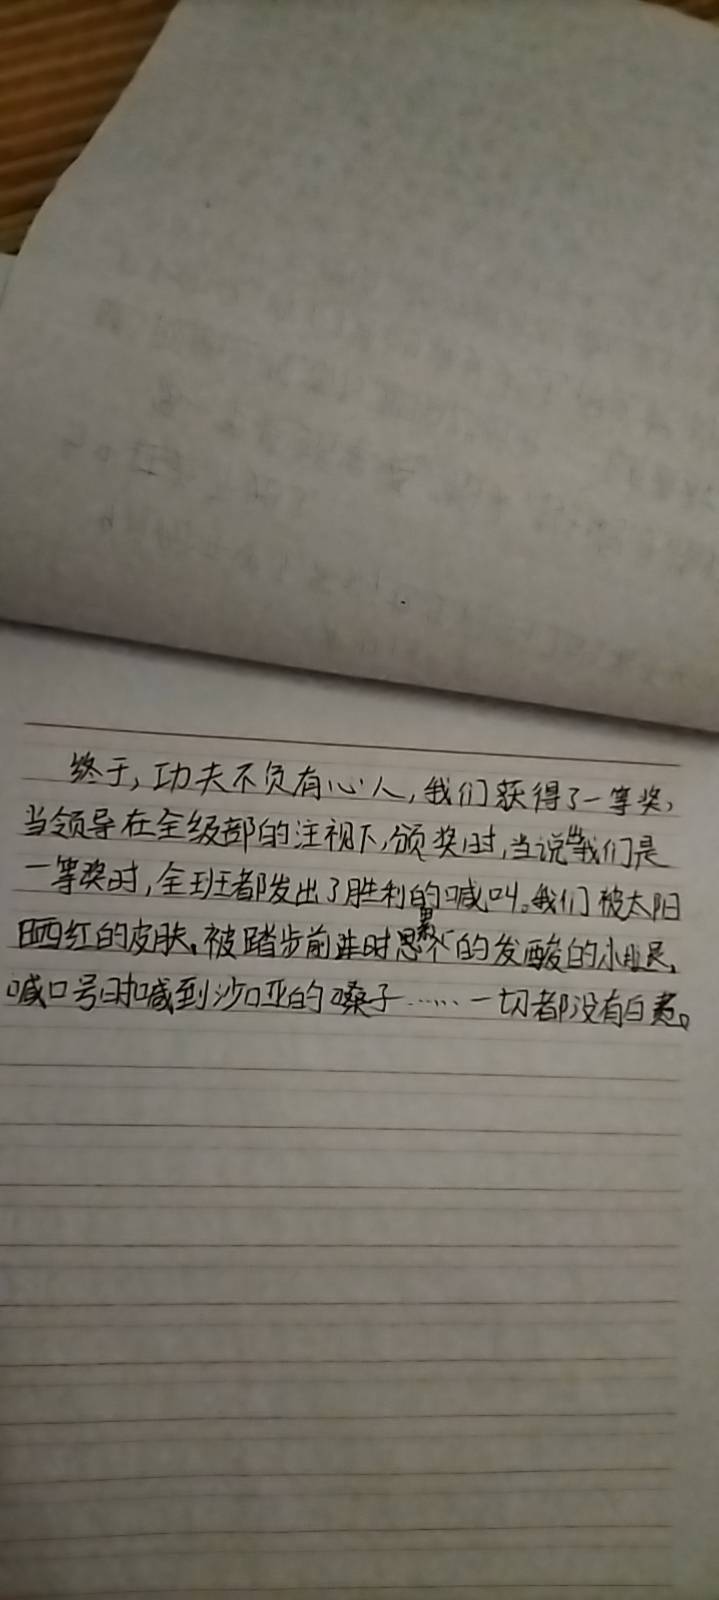 终于，功夫不负有心人，我们获得了一等奖，
当领导在全级部的注视下，颁奖时，当说出我们是
一等奖时，全班都发出了胜利的喊叫。我们被太阳
晒红的皮肤、被踏步前进时累的发酸的小腿、
喊口号时喊到沙哑的嗓子……一切都没有白费。